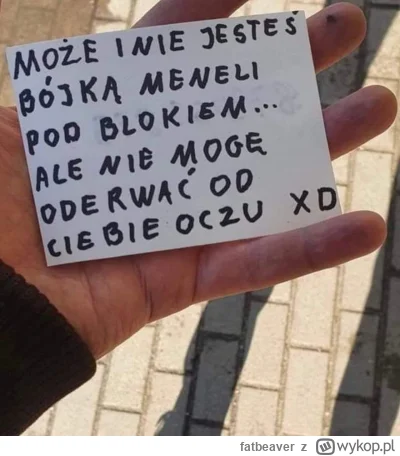 MOŻE I NIE JESTEŚ
BÓJKĄ MENELI
POD BLOKIEM...
ALE NIE MOGĘ
ODERWAĆ OD
CIEBIE OCZU XD
fatbeaver z wykop.pl